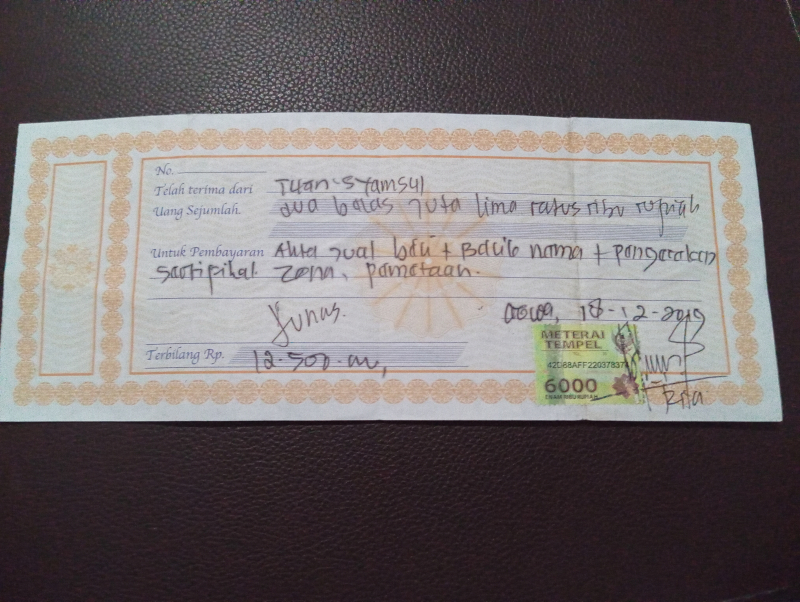 No.
Telah terima dari Tuan Syamsul
Uang Sejumlah. dua balas Juta lima ratus ribu rupiah
Untuk Pembayaran Akta Jual beli + Balik nama + pangecekan
Sartipikat Zona, pametaan.
Lunas.
18-12-2019
METERAI
TEMPEL
42DB8AFF220378374
6000
ENAM RIBU RUPIAH
Terbilang Rp. 12.500.000,
Rita